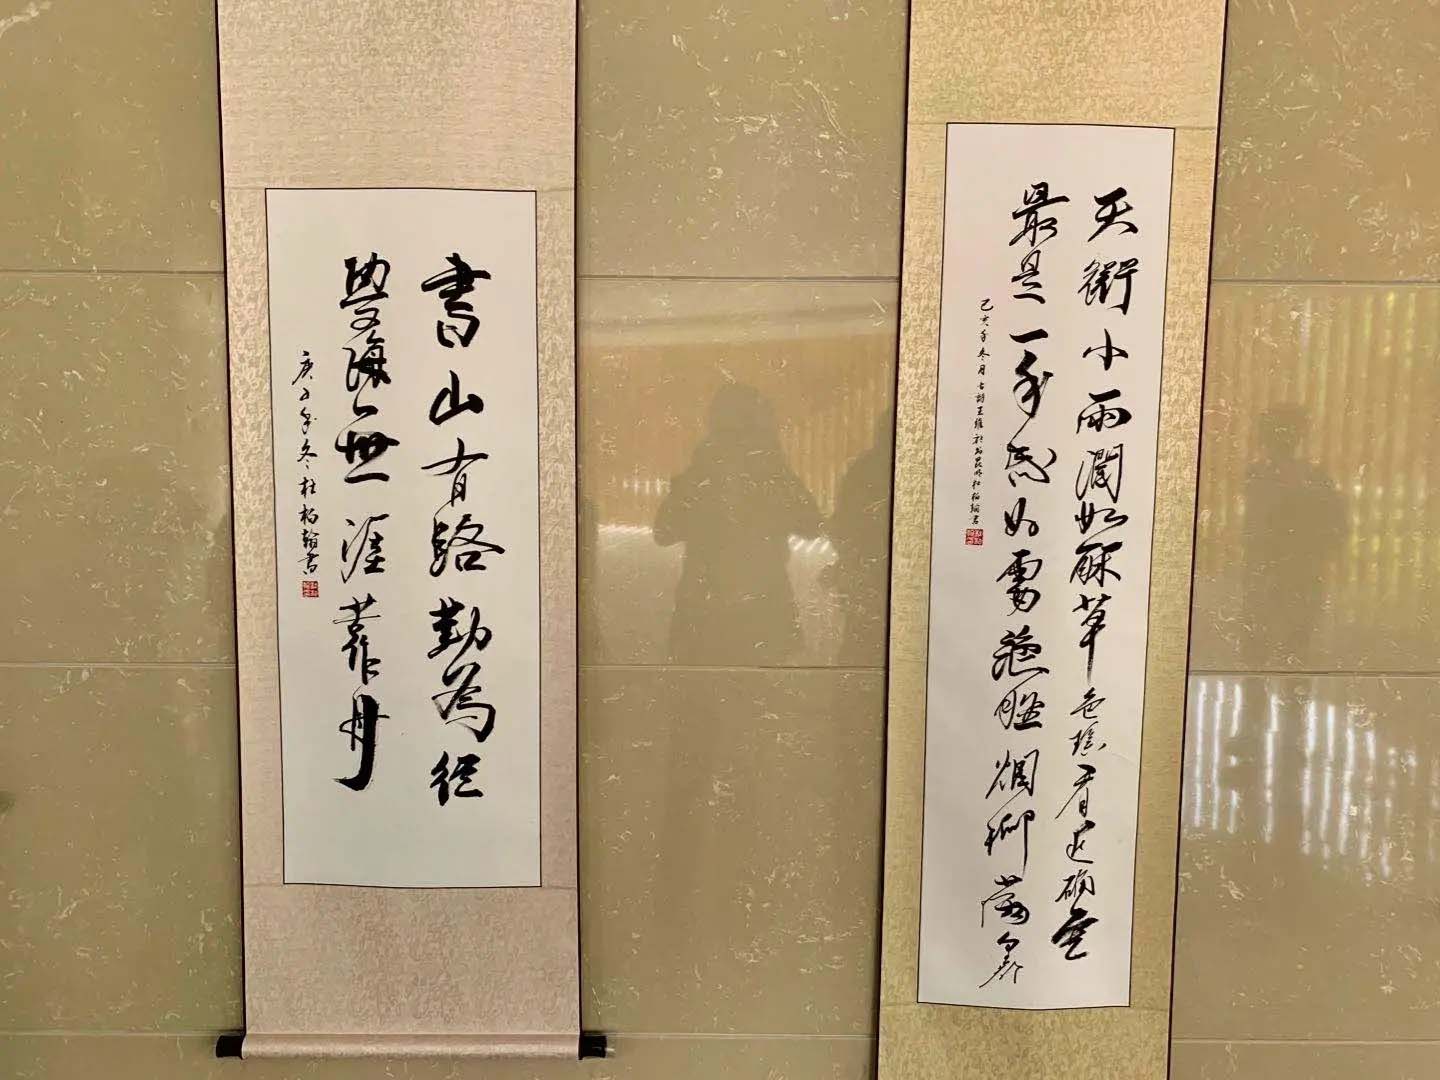 天街小雨潤如酥草色遙看近卻無
最是一年春好處絕勝烟柳滿皇都
己亥年冬月古詩王維 杜柏翰書
書山有路勤為徑
學海無涯苦作舟
庚子年冬杜柏翰書